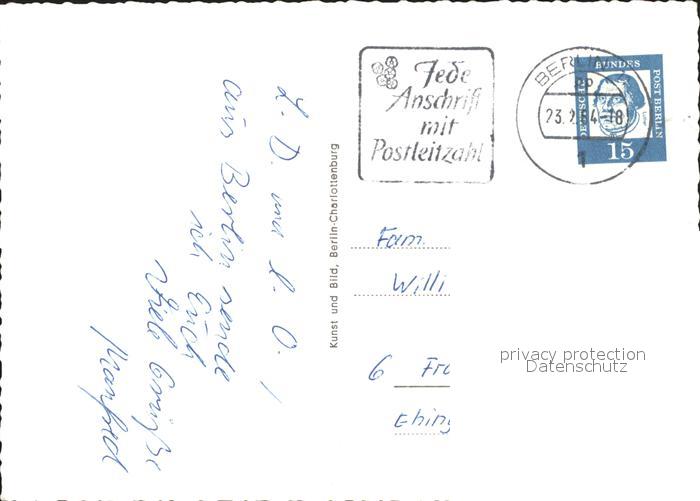 L. D. und L. O. !
aus Berlin sende
ich Euch
viele Grüße
Manfred
Kunst und Bild, Berlin-Charlottenburg
Jede
Anschrift
mit
Postleitzahl
BERLIN
23.2.64-18
1
DEUTSCHE BUNDES POST BERLIN
15
Fam.
Willi
6 Fra
Ehing
privacy protection
Datenschutz